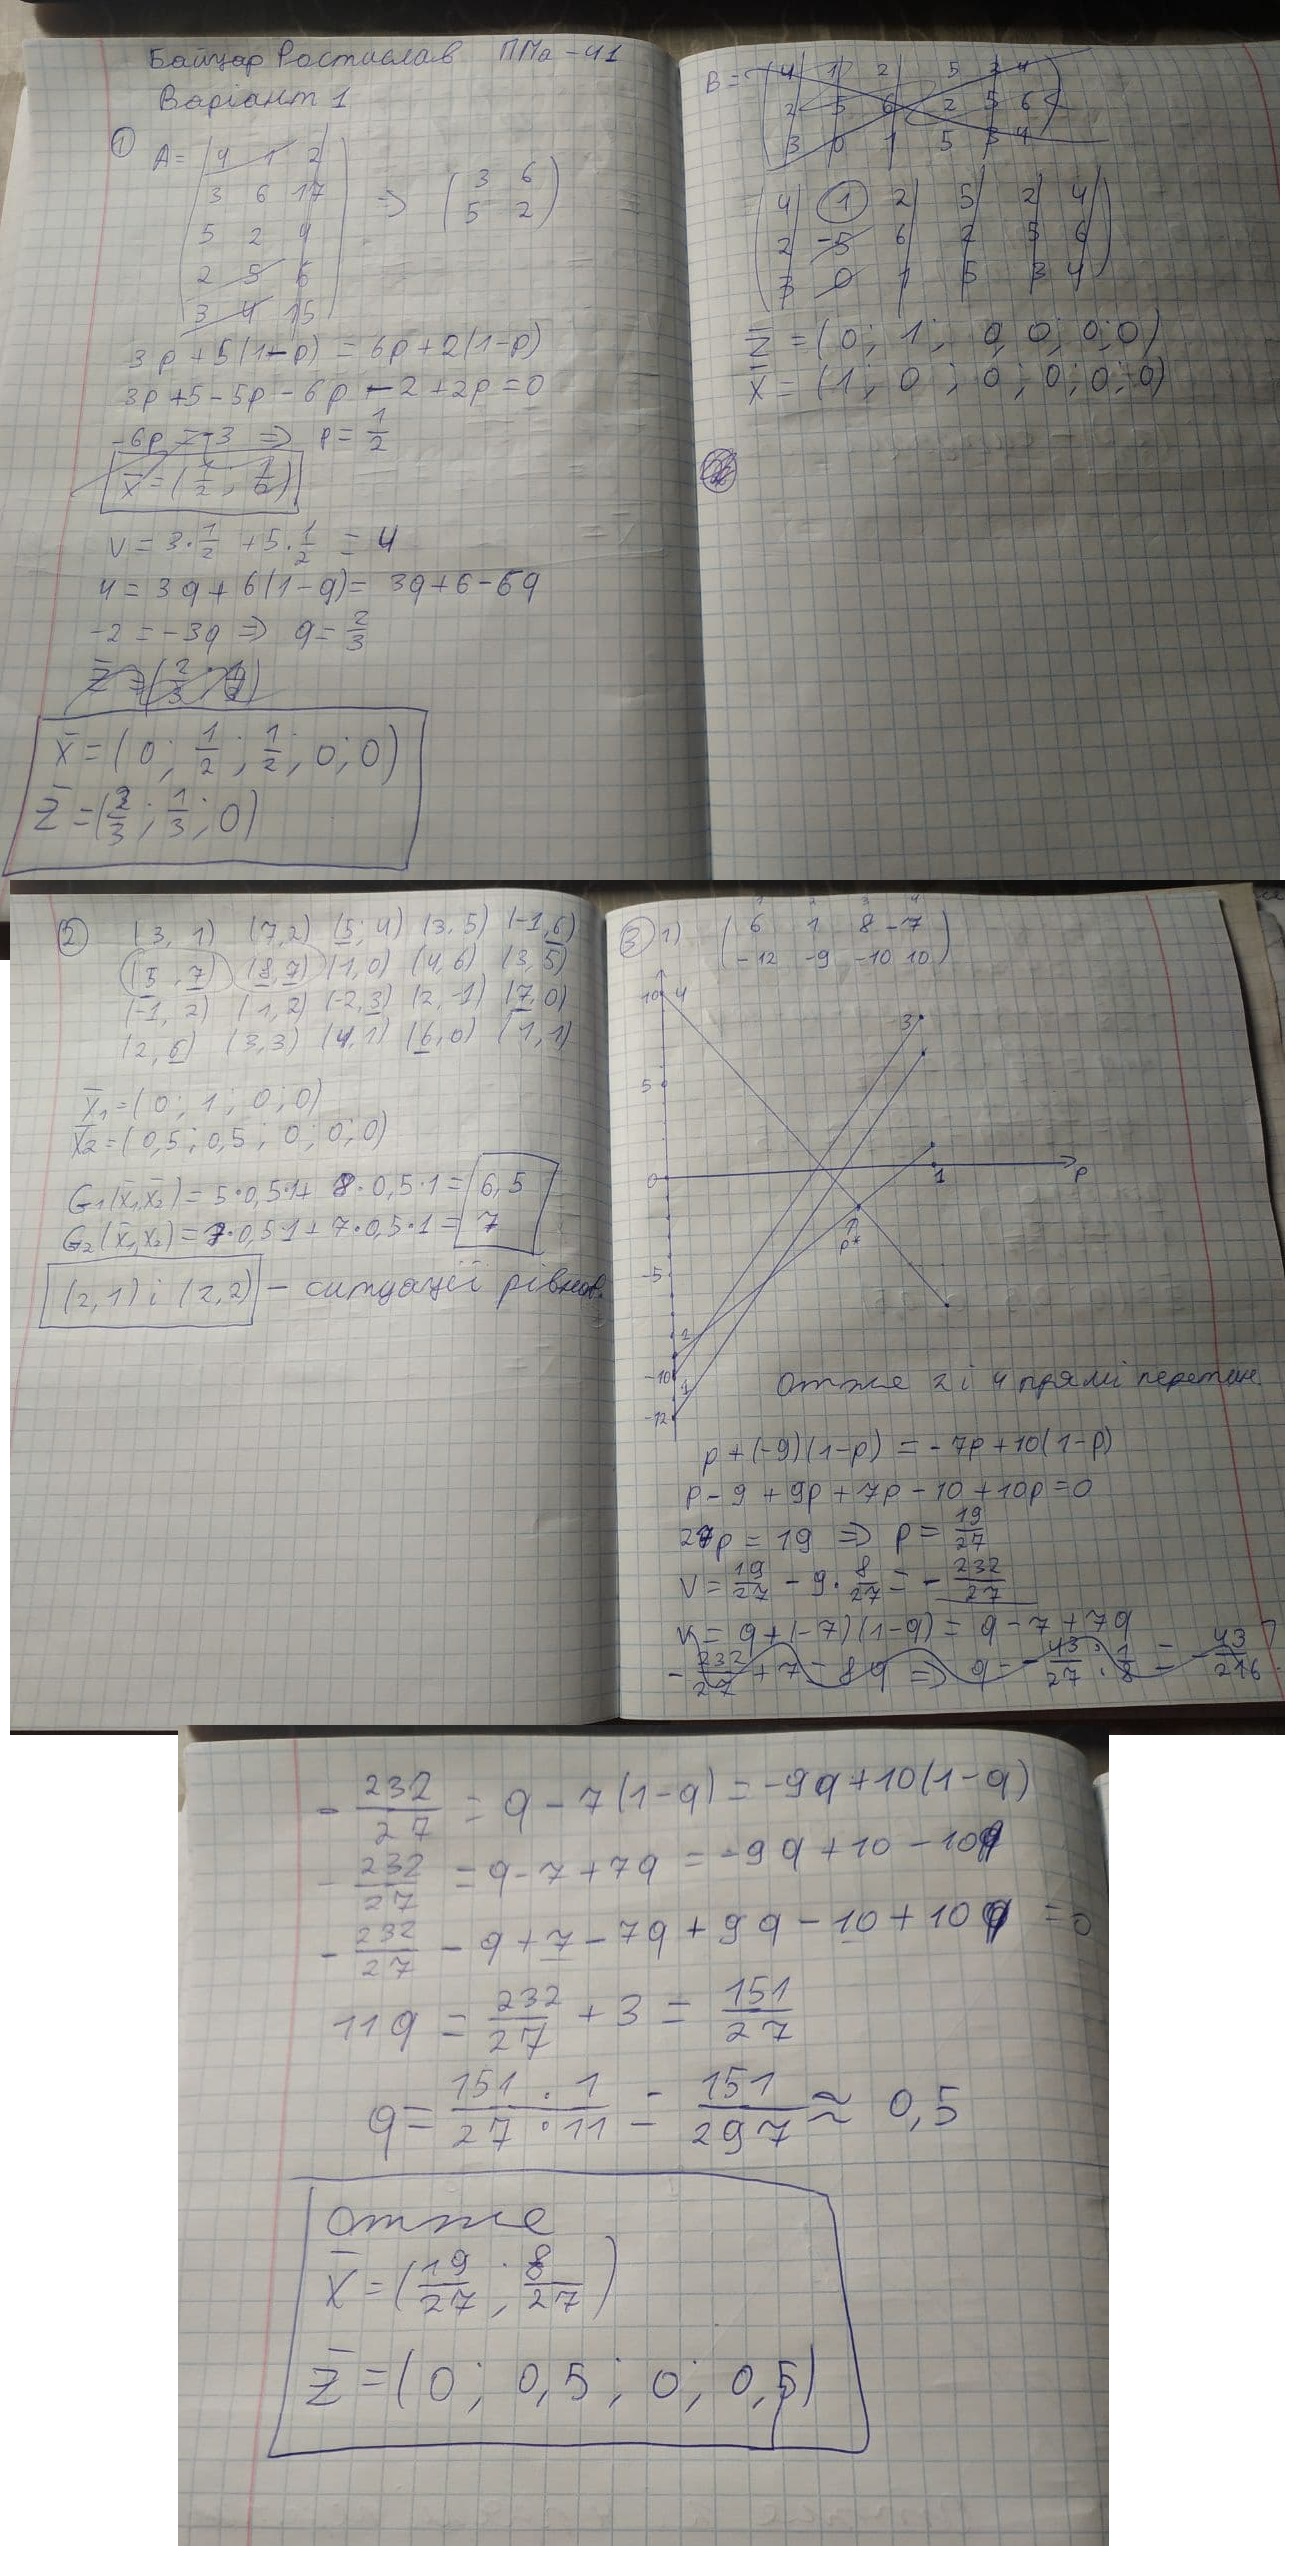 Байцар Ростислав ПМа-41
Варіант 1
① A = ( 4 1 2
3 6 17
5 2 4
2 5 6
3 4 15 ) => ( 3 6
5 2 )
3p + 5(1-p) = 6p + 2(1-p)
3p + 5 - 5p - 6p - 2 + 2p = 0
-6p = -3 => p = 1/2
x̄ = (1/2; 1/2)
V = 3·1/2 + 5·1/2 = 4
4 = 3q + 6(1-q) = 3q + 6 - 6q
-2 = -3q => q = 2/3
x̄ = (0; 1/2; 1/2; 0; 0)
z̄ = (2/3; 1/3; 0)
B = ( 4 1 2 5 3 4
2 -5 6 2 5 6
3 0 1 5 3 4 )
( 4 1 2 5 2 4
2 -5 6 2 5 6
3 0 1 5 3 4 )
z̄ = (0; 1; 0; 0; 0; 0)
x̄ = (1; 0; 0; 0; 0; 0)
② (3, 1) (7, 2) (5; 4) (3, 5) (-1, 6)
(5, 7) (8, 7) (-1, 0) (4, 6) (3, 5)
(-1, 2) (1, 2) (-2, 3) (2, -1) (7, 0)
(2, 6) (3, 3) (4, 1) (6, 0) (1, 1)
x̄₁ = (0; 1; 0; 0)
x̄₂ = (0,5; 0,5; 0; 0; 0)
G₁(x̄₁, x̄₂) = 5·0,5·1 + 8·0,5·1 = 6,5
G₂(x̄₁, x₂) = 7·0,5·1 + 7·0,5·1 = 7
(2,1) і (2,2) - ситуації рівнов.
③ 1) 1 2 3 4
( 6 1 8 -7
-12 -9 -10 10 )
10 4
3
5
0 1 p
p*
-5
2
-10
1
-12
Отже 2 і 4 прямі перетин.
p + (-9)(1-p) = -7p + 10(1-p)
p - 9 + 9p + 7p - 10 + 10p = 0
27p = 19 => p = 19/27
V = 19/27 - 9·8/27 = -232/27
V = q + (-7)(1-q) = q - 7 + 7q
-232/27 + 7 = 8q => q = -43/27 · 1/8 = -43/216
-232/27 = q - 7(1-q) = -9q + 10(1-q)
-232/27 = q - 7 + 7q = -9q + 10 - 10q
-232/27 - q + 7 - 7q + 9q - 10 + 10q = 0
11q = 232/27 + 3 = 151/27
q = 151/27 · 1/11 = 151/297 ≈ 0,5
Отже
x̄ = (19/27; 8/27)
z̄ = (0; 0,5; 0; 0,5)